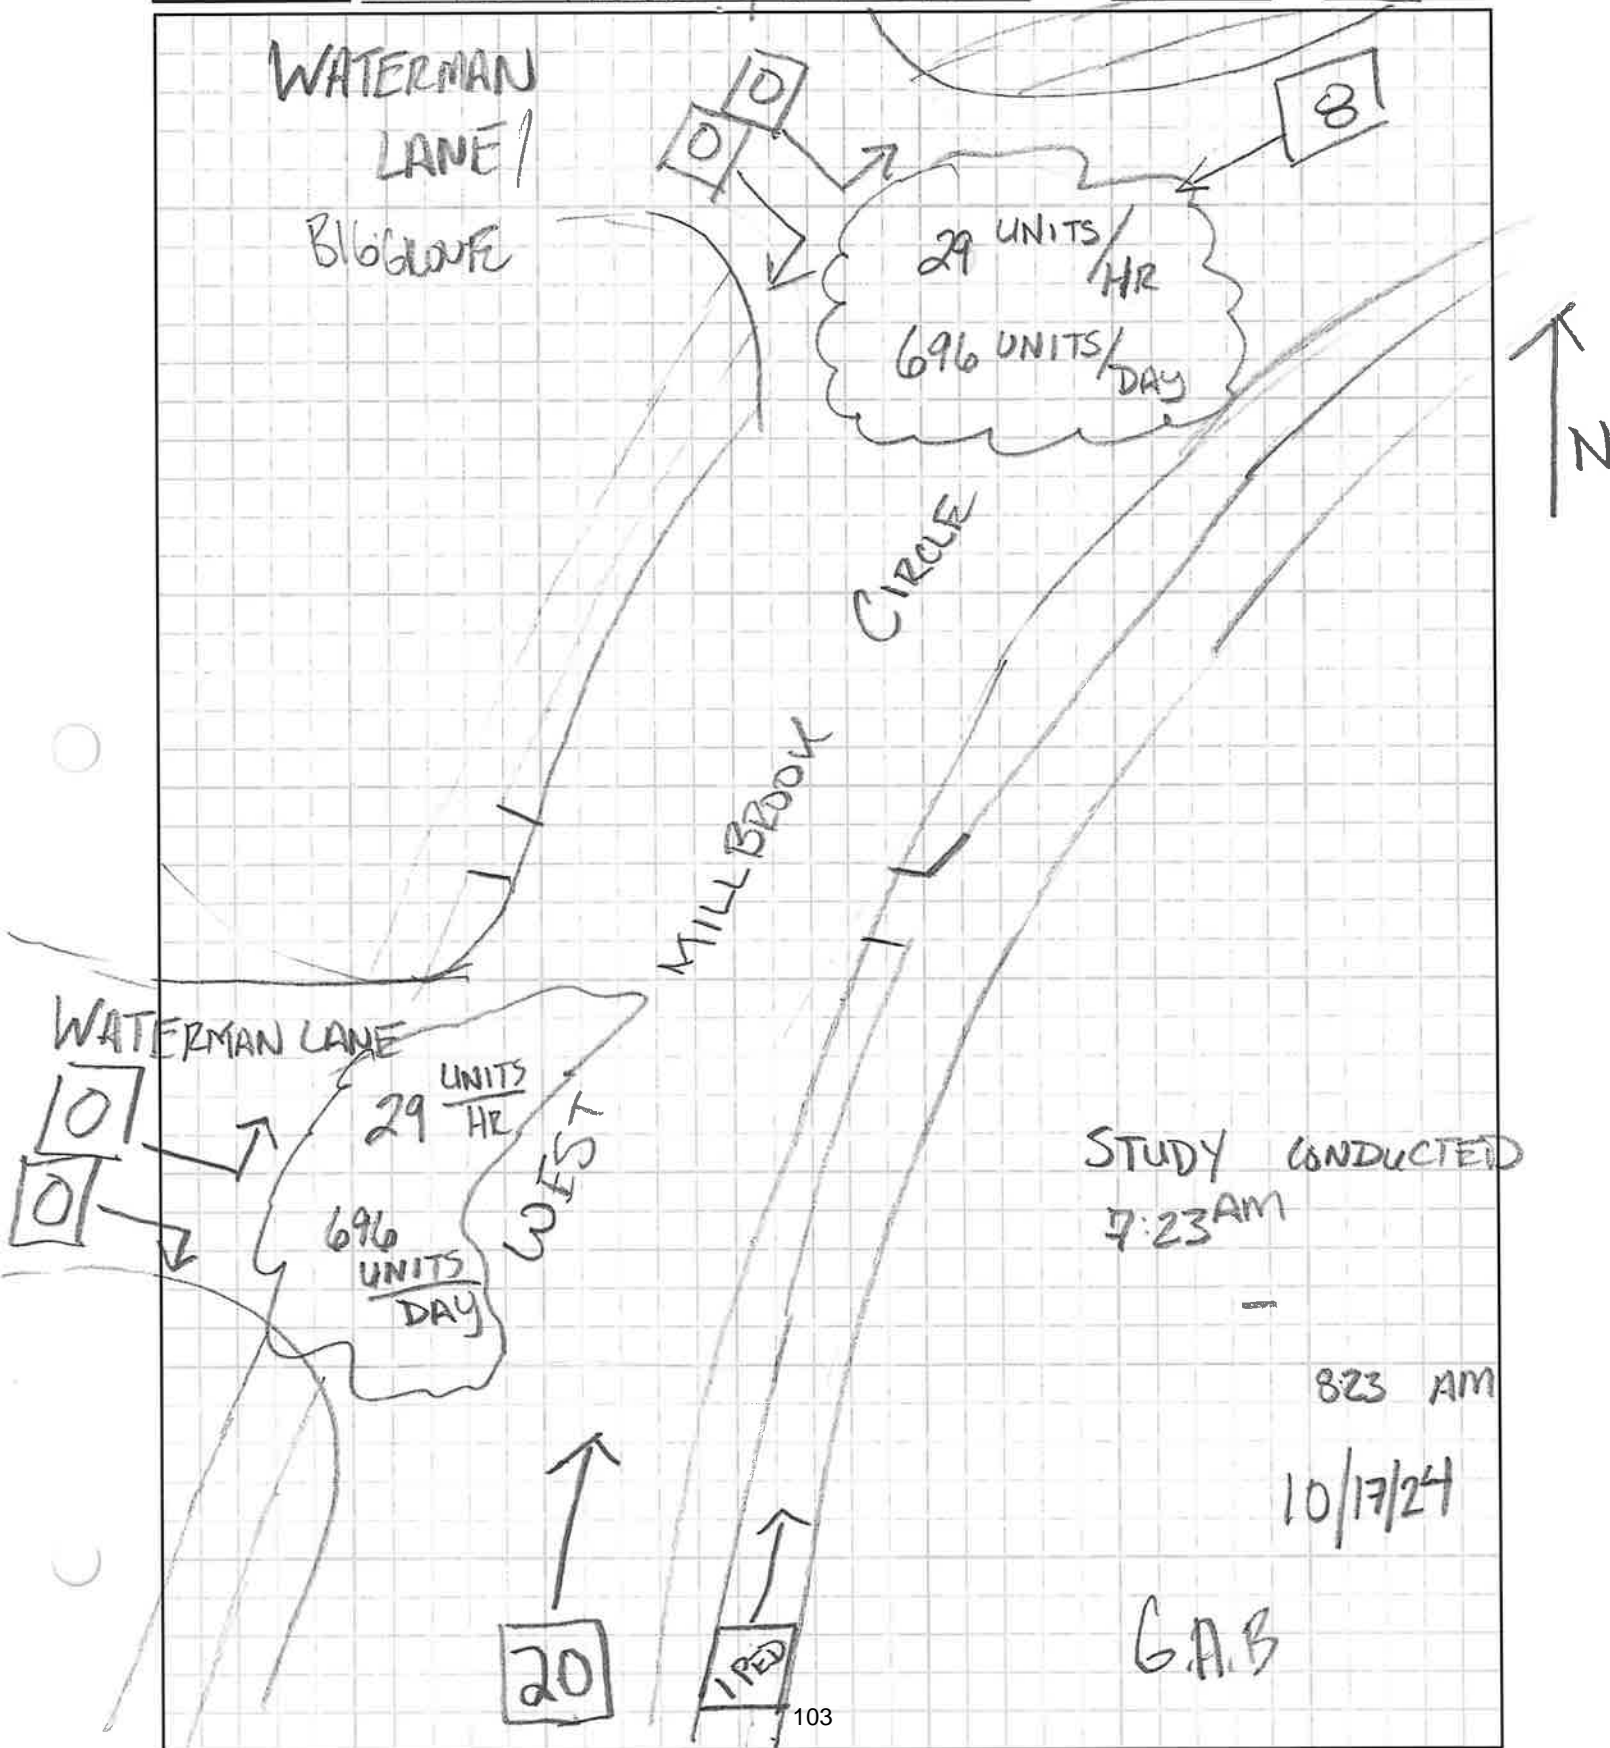 WATERMAN
LANE/
0
0
8
29 UNITS/HR
696 UNITS/DAY
N
MILLBROOK CIRCLE
WATERMAN LANE
0
0
29 UNITS
HR
696
UNITS
DAY
WEST
STUDY CONDUCTED
7:23 AM
-
823 AM
10/17/24
G.A.B
20
1 PED
103